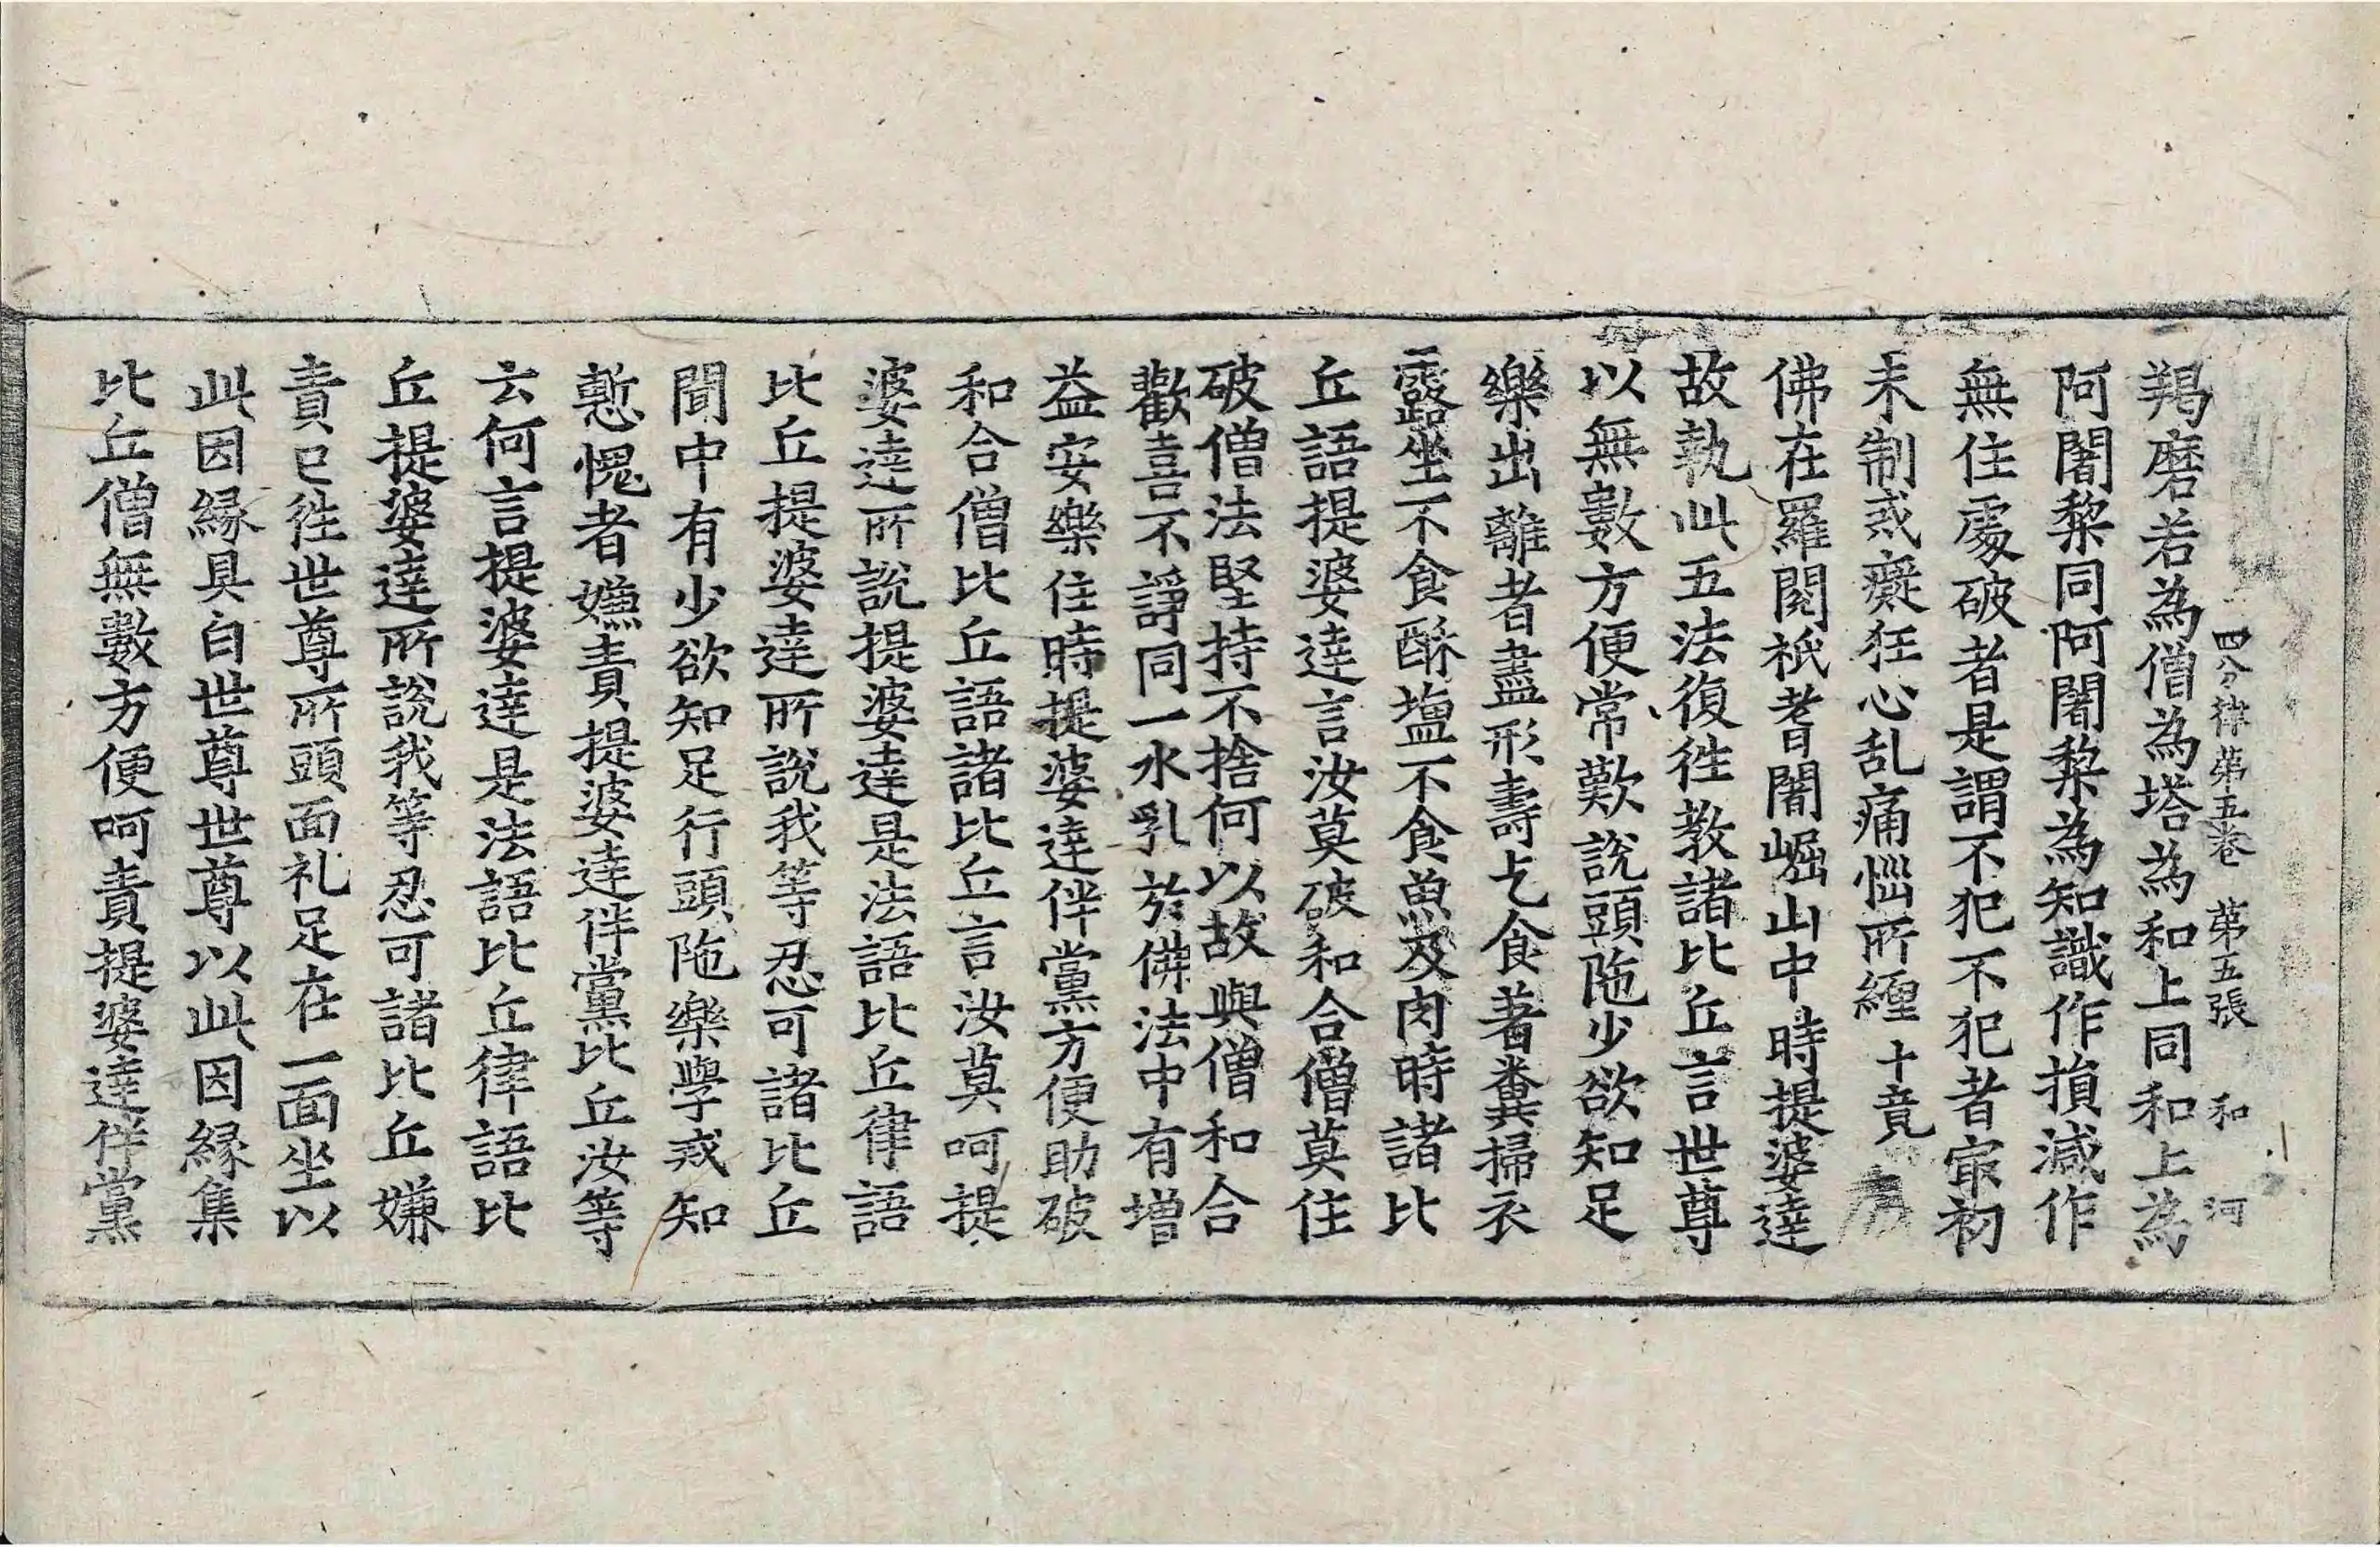 四分律第五卷 第五張 和 河
羯磨若為僧為塔為和上同和上為
阿闍黎同阿闍黎為知識作損減作
無住處破者是謂不犯不犯者冣初
未制戒癡狂心乱痛惱所纏十竟
佛在羅閱祇耆闍崛山中時提婆達
故執此五法復往教諸比丘言世尊
以無數方便常歎說頭陁少欲知足
樂出離者盡形壽乞食著糞掃衣
露坐不食酥塩不食魚及肉時諸比
丘語提婆達言汝莫破和合僧莫住
破僧法堅持不捨何以故與僧和合
歡喜不諍同一水乳於佛法中有增
益安樂住時提婆達伴黨方便助破
和合僧比丘語諸比丘言汝莫呵提
婆達所說提婆達是法語比丘律語
比丘提婆達所說我等忍可諸比丘
聞中有少欲知足行頭陁樂學戒知
慙愧者嫌責提婆達伴黨比丘汝等
云何言提婆達是法語比丘律語比
丘提婆達所說我等忍可諸比丘嫌
責已徃世尊所頭面礼足在一面坐以
此因緣具白世尊世尊以此因緣集
比丘僧無數方便呵責提婆達伴黨